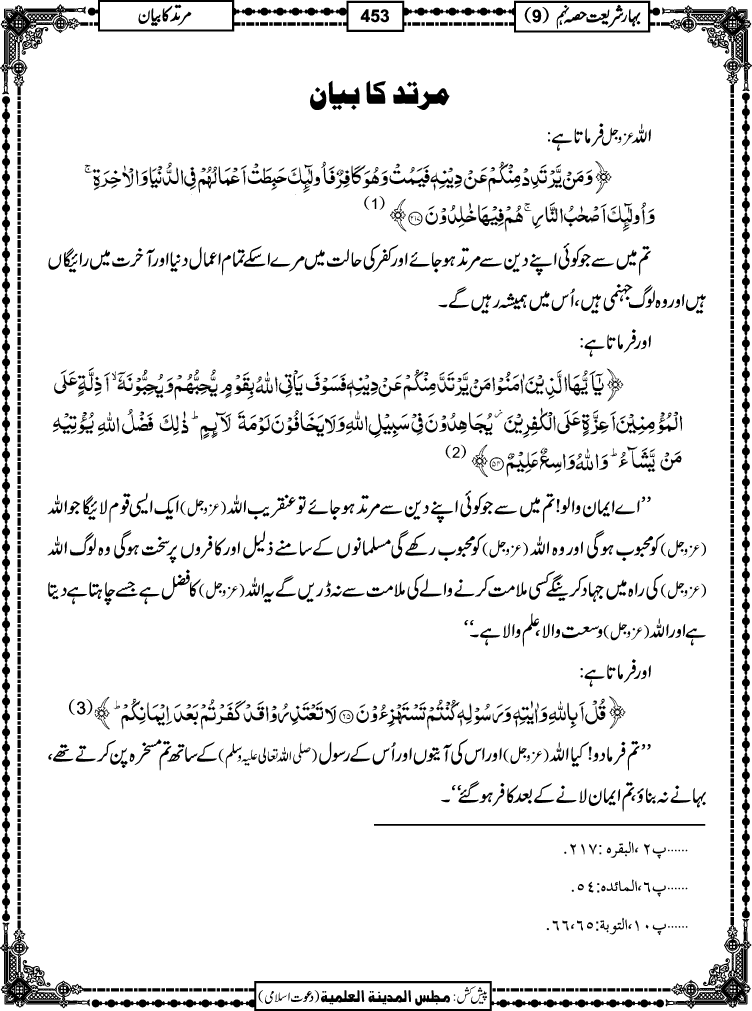 بہارِ شریعت حصہ نہم (9)
453
مرتد کا بیان
مرتد کا بیان
اللہ عزوجل فرماتا ہے:
﴿ وَمَنْ يَّرْتَدِدْ مِنْكُمْ عَنْ دِيْنِهٖ فَيَمُتْ وَهُوَ كَافِرٌ فَاُولٰٓىِٕكَ حَبِطَتْ اَعْمَالُهُمْ فِي الدُّنْيَا وَالْاٰخِرَةِ ۚ
وَاُولٰٓىِٕكَ اَصْحٰبُ النَّارِ ۚ هُمْ فِيْهَا خٰلِدُوْنَ ﴿۲۱۷﴾ ﴾ (1)
تم میں سے جو کوئی اپنے دین سے مرتد ہو جائے اور کفر کی حالت میں مرے اسکے تمام اعمال دنیا اور آخرت میں رائیگاں
ہیں اور وہ لوگ جہنمی ہیں، اُس میں ہمیشہ رہیں گے۔
اور فرماتا ہے:
﴿ يٰۤاَيُّهَا الَّذِيْنَ اٰمَنُوْا مَنْ يَّرْتَدَّ مِنْكُمْ عَنْ دِيْنِهٖ فَسَوْفَ يَاْتِي اللّٰهُ بِقَوْمٍ يُّحِبُّهُمْ وَيُحِبُّوْنَهٗۤ ۙ اَذِلَّةٍ عَلَى
الْمُؤْمِنِيْنَ اَعِزَّةٍ عَلَى الْكٰفِرِيْنَ ؗ يُجَاهِدُوْنَ فِيْ سَبِيْلِ اللّٰهِ وَلَا يَخَافُوْنَ لَوْمَةَ لَآىِٕمٍ ؕ ذٰلِكَ فَضْلُ اللّٰهِ يُؤْتِيْهِ
مَنْ يَّشَآءُ ؕ وَاللّٰهُ وَاسِعٌ عَلِيْمٌ ﴿۵۴﴾ ﴾ (2)
’’اے ایمان والو! تم میں سے جو کوئی اپنے دین سے مرتد ہو جائے تو عنقریب اللہ (عزوجل) ایک ایسی قوم لائیگا جو اللہ
(عزوجل) کو محبوب ہوگی اور وہ اللہ (عزوجل) کو محبوب رکھے گی مسلمانوں کے سامنے ذلیل اور کافروں پر سخت ہوگی وہ لوگ اللہ
(عزوجل) کی راہ میں جہاد کرینگے کسی ملامت کرنے والے کی ملامت سے نہ ڈریں گے یہ اللہ (عزوجل) کا فضل ہے جسے چاہتا ہے دیتا
ہے اور اللہ (عزوجل) وسعت والا، علم والا ہے۔‘‘
اور فرماتا ہے:
﴿ قُلْ اَبِاللّٰهِ وَاٰيٰتِهٖ وَرَسُوْلِهٖ كُنْتُمْ تَسْتَهْزِءُوْنَ ﴿۶۵﴾ لَا تَعْتَذِرُوْا قَدْ كَفَرْتُمْ بَعْدَ اِيْمَانِكُمْ ؕ ﴾ (3)
’’تم فرمادو! کیا اللہ (عزوجل) اور اس کی آیتوں اور اُس کے رسول (صلی اللہ تعالی علیہ وسلم) کے ساتھ تم مسخرہ پن کرتے تھے،
بہانے نہ بناؤ، تم ایمان لانے کے بعد کافر ہوگئے‘‘۔
......پ٢، البقرہ :٢١٧.
......پ٦، المائدہ:٥٤.
......پ١٠، التوبۃ:٦٥،٦٦.
پیش کش: مجلس المدینة العلمیة (دعوت اسلامی)